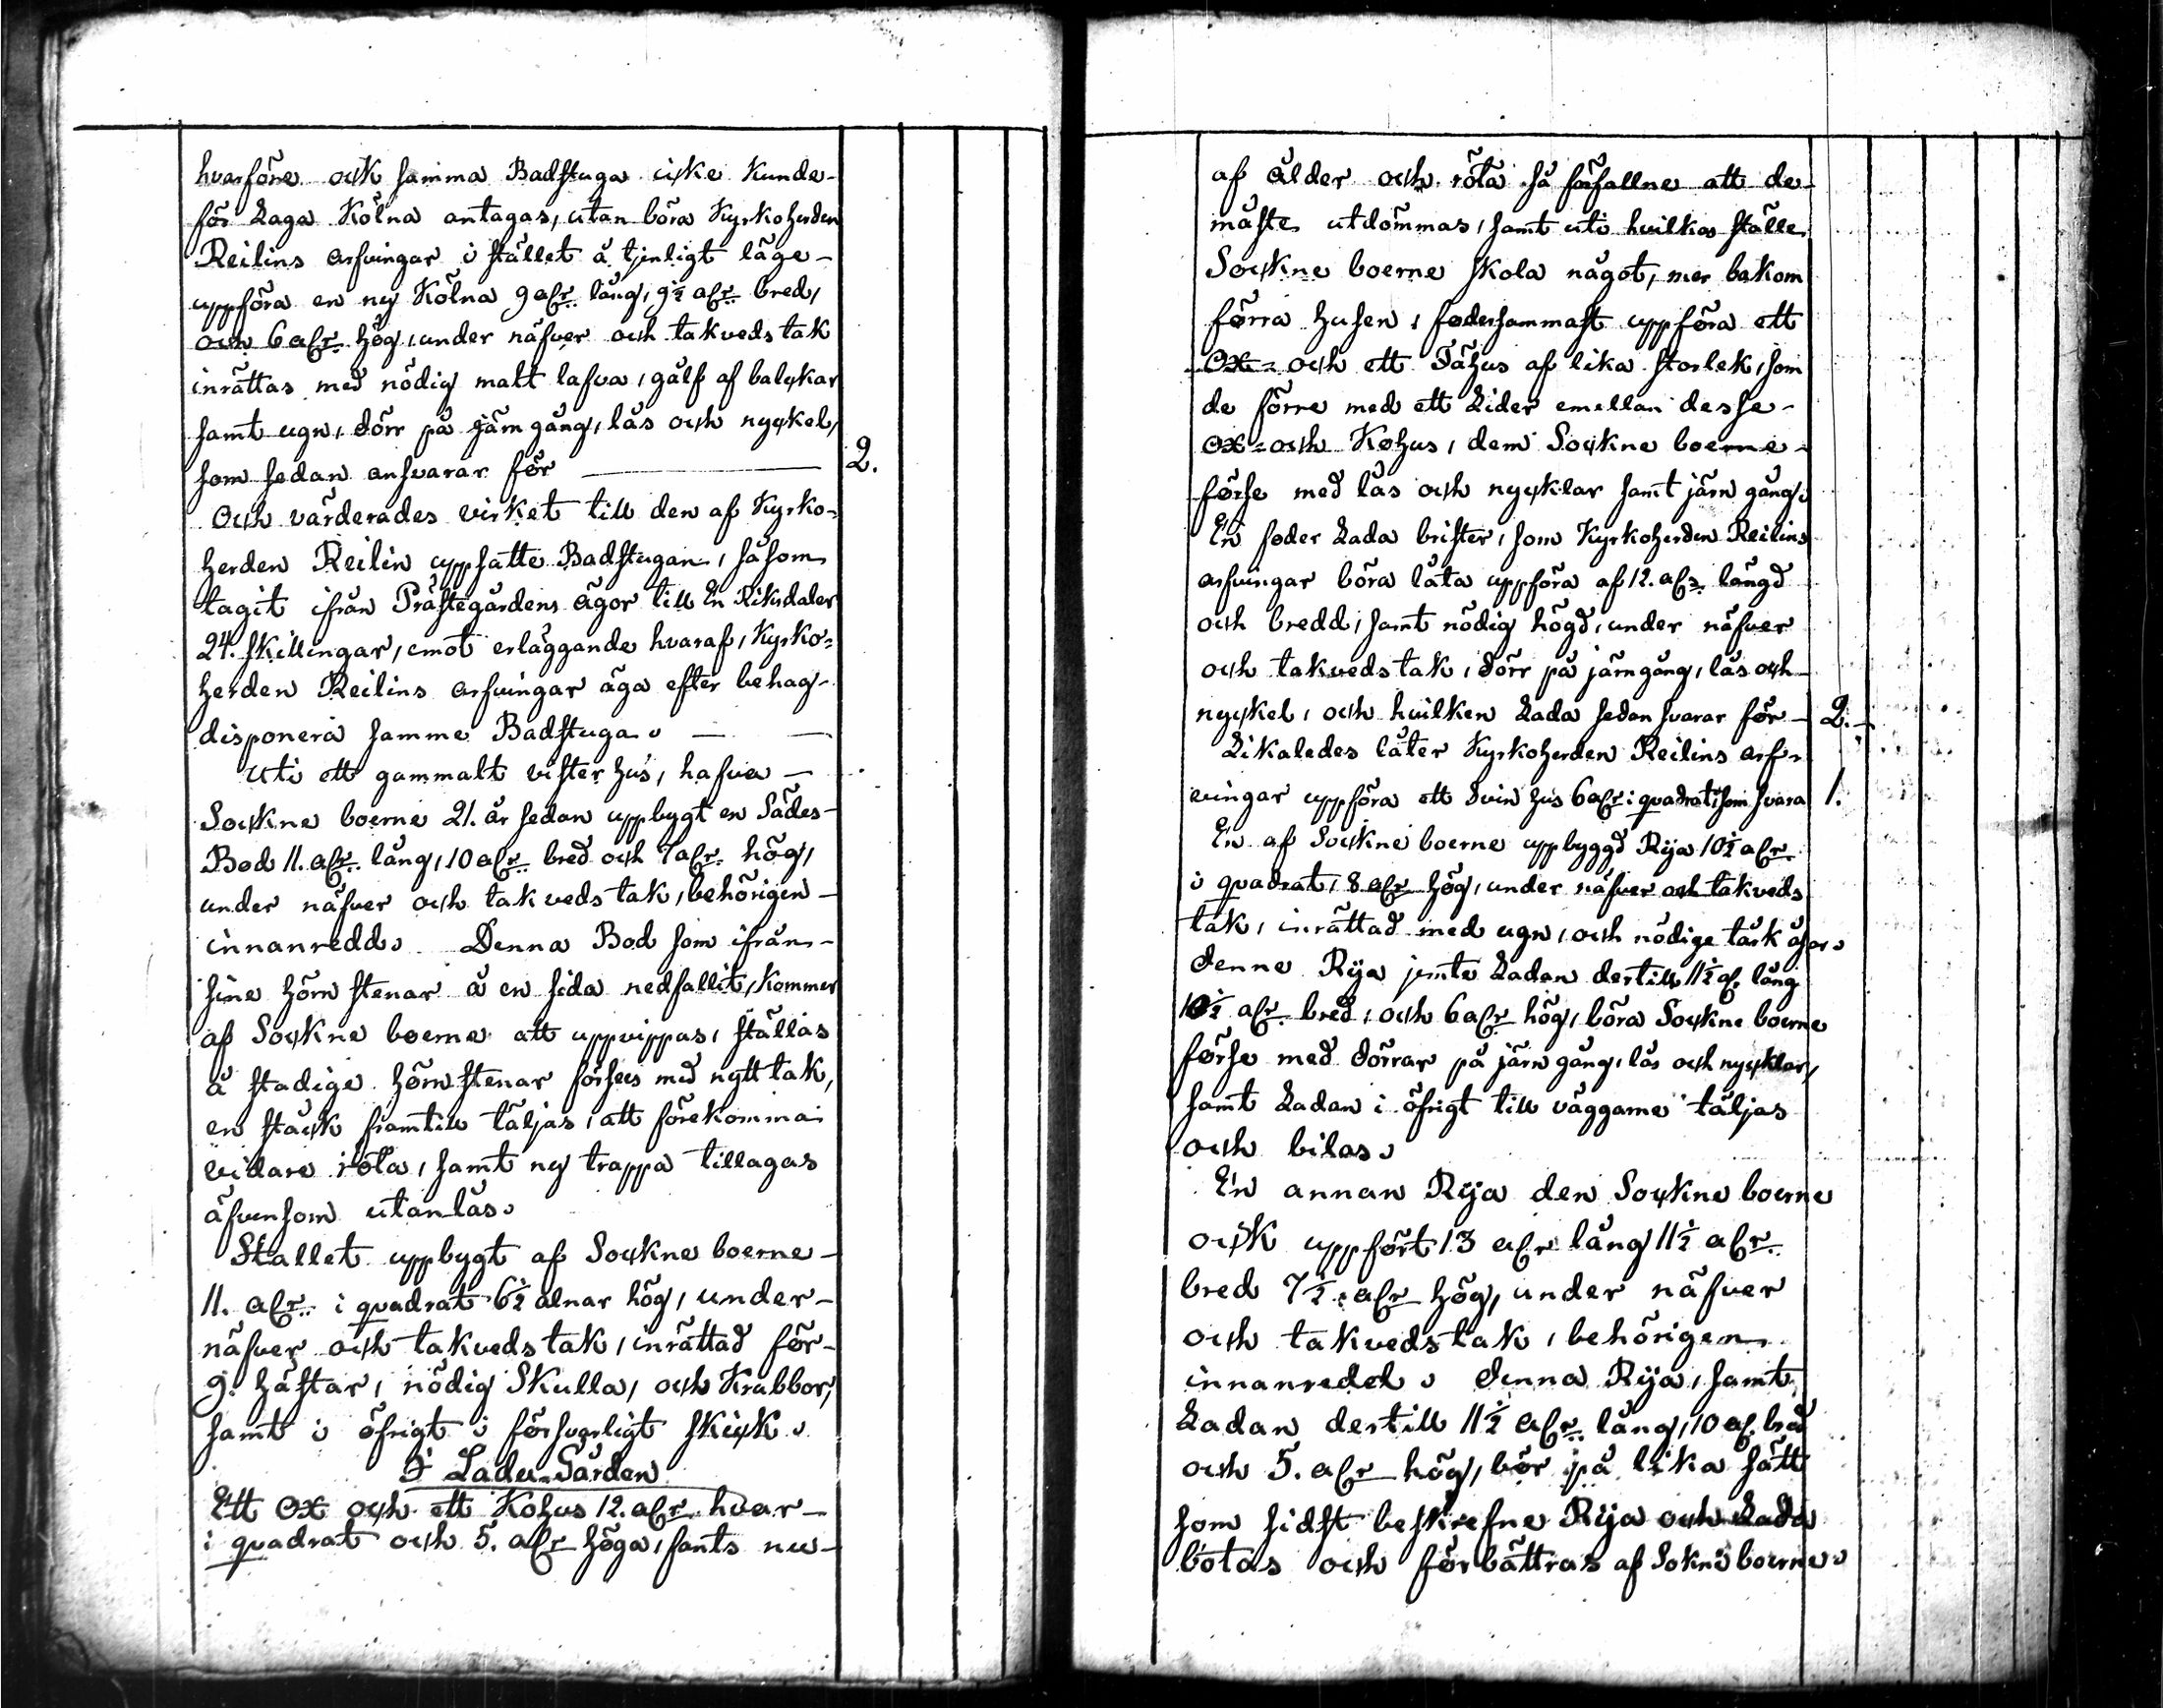 hvarföre ock samma Badstuga icke kunde-
för Laga Kölna antagas, utan böra Kyrkoherden
Reilins arfvingar i stället å tjenligt läge-
uppföra en ny Kölna 9 alr. lång, 9½ alr. bred,
och 6 alr. hög, under näfver och takveds tak
inrättas med nödig malt lafva, gålf af balckar
samt ugn, dörr på järn gång, lås och nyckel,
som sedan ansvarar för — 2.
Och värderades virket till den af Kyrko-
herden Reilin uppsatte Badstugan, såsom
tagit ifrån Prästegårdens ägor till En Riksdaler
24. skillingar, emot erläggande hvaraf, Kyrko-
herden Reilins arfvingar äga efter behag-
disponera samme Badstuga. — —
Uti ett gammalt vister hus, hafva —
Sockne boerne 21. år sedan uppbygt en Sädes-
Bod 11. alr. lång, 10 alr. bred och 7 alr. hög,
under näfver och tak veds tak, behörigen-
innanredd. Denna Bod som ifrån-
sine hörn stenar å en sida nedfallit, kommer
af Sockne boerne att uppvippas, ställas
å stadige hörn stenar förses med nytt tak,
en stäck framtill täljas, att förekomma
vidare röta, samt ny trappa tillagas
äfvensom utanlås.
Stallet uppbygt af Sockne boerne-
11. alr. i quadrat 6½ alnar hög, under-
näfver och takveds tak, inrättad för-
9. hästar, nödig Skulla, och Krubbor,
samt i öfrigt i försvarligt skick.
I Ladu-Gården
Ett Ox och ett Kohus 12. alr. hvar-
i quadrat och 5. alr höga, fants nu-
af ålder och röta så förfallne att de-
måste utdömmas, samt uti hvilkas ställe
Sockne boerne skola något, mer bakom
förra husen, fodersammast uppföra ett
Ox- och ett Fähus af lika storlek, som
de förre med ett Lider emellan desse-
Ox- och Kohus, dem Sockne boerne-
förse med lås och nycklar samt järn gång.
En foder Lada brister, som Kyrkoherden Reilins
arfvingar böra låta uppföra af 12. alrs. längd
och bredd, samt nödig högd, under näfver
och takveds tak, dörr på järngång, lås och-
nyckel, och hvilken Lada sedan svarar för- 2.-
Likaledes låter Kyrkoherden Reilins arf-
vingar uppföra ett Svin hus 6 alr. i quadrat, som svara 1.
En af Sockne boerne uppbyggd Rija 10½ alr.
i quadrat, 8 alr hög, under näfver och takveds
tak, inrättad med ugn, och nödige tårk åsar.
denne Rija jemte Ladan dertill 11½ al. lång
10½ alr. bred, och 6 alr hög, böra Sockne boerne
förse med dörrar på järn gång, lås och nycklar,
samt Ladan i öfrigt till väggarne täljas
och bilas.
En annan Rija den Sockne boerne
ock uppfört 13 alr lång 11½ alr.
bred 7½ alr hög, under näfver
och takveds tak, behörigen
innanredd. denna Rija, samt
Ladan dertill 11½ alr. lång, 10 al. bred
och 5. alr hög, bör på lika sätt
som sidst beskrefne Rija och Lada
botas och förbättras af Sokne boerne.